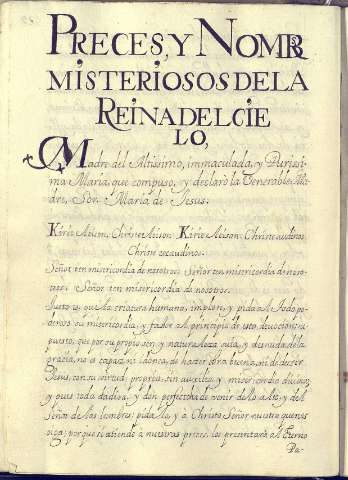 PRECES, Y NOMBR
MISTERIOSOS DE LA
REINA DEL CIE
LO,
Madre del Altissimo, immaculada, y Purissi-
ma Maria, que compuso, y declarò la Venerable Ma-
dre, Sor. Maria de Jesus.
Kirie eleison. Christe eleison. Kirie eleison. Christe audi nos
Christe exaudi nos.
Señor ten misericordia de nosotros. Señor ten misericordia de noso-
tros. Señor ten misericordia de nosotros.
Justo es, que la criatura humana, implore, y pida al Todopo-
deroso su misericordia, y favor al principio de esta devocion su
puesto, que por su propio ser, y naturaleza sola, y desnuda de la
gracia, no es capaz, ni idonea, de hazer obra buena, ni de dezir
Jesus, con su virtud propria, sin auxilio, y misericordia divina;
y pues toda dadiva, y don perfecto ha de venir de lo alto, y del
Señor de las lumbres; pidalo, y à Christo Señor nuestro que nos
oiga; porque si atiende à nuestras preces, las presentarà al Eterno
Pa-